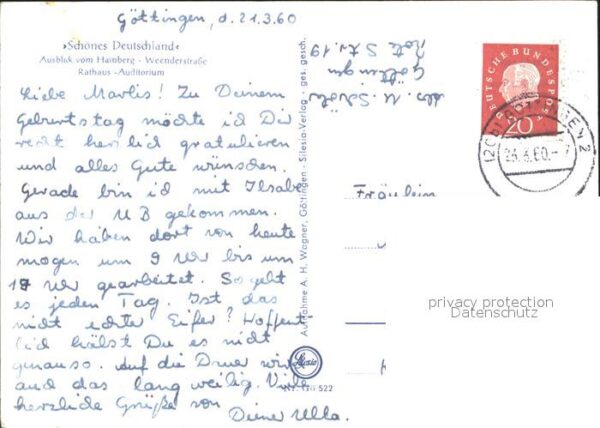 Göttingen, d. 21.3.60
»Schönes Deutschland«
Ausblick vom Hainberg - Weenderstraße
Rathaus - Auditorium
Liebe Marlis! Zu Deinem
Geburtstag möchte ich Dir
recht herzlich gratulieren
und alles Gute wünschen.
Gerade bin ich mit Ilsabe
aus der UB gekommen.
Wir haben dort von heute
morgen um 9 Uhr bis um
17 Uhr gearbeitet. So geht
es jeden Tag. Ist das
nicht echter Eifer? Hoffent-
lich hälst Du es nicht
genauso. Auf die Dauer wird
auch das langweilig. Viele
herzliche Grüße von
Deiner Ulla.
Aufnahme A. H. Wagner, Göttingen - Silesia-Verlag - ges. gesch.
Silesia
522
Abs. U.
Göttingen
Str. 19
DEUTSCHE BUNDESPOST
20
(20b) GÖTTINGEN 2
60.-7
Fräulein
privacy protection
Datenschutz